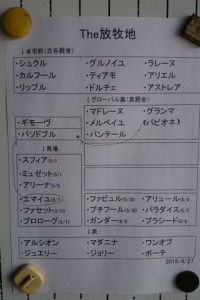 The放牧地
1 本宅前(古谷厩舎)
・シュクル ・グルノイユ ・ラレーヌ
・カルフール ・ティアモ ・アリエル
・リップル ・ドルチェ ・アストレア
1 グローバル裏(奥厩舎)
・マドレーヌ ・グランマ
・ギモーヴ ・メルベイユ (パピオネ)
・パンドブル ・パンテール
1 馬場
・スフィア(5/1)
・ミュゼット(5/1)
・アリーナ(5/5)
・エマイユ(5/5) ・ファビュル(5/20) ・アリュール(6/4)
・ファセット(5/10) ・プチフール(5/20) ・パラダイス(6/5)
・プロローグ(5/11) ・ガンブール(5/30) ・プラシード(6/9)
1 奥
・アルシオン ・マダニナ ・ワンオブ
・ジュエリー ・ジョリー ・ボーテ
2015/4/27